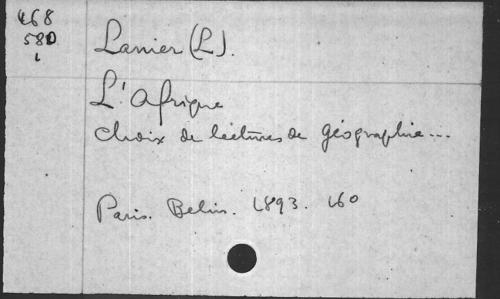 468
58D
1
Lanier (L).
L'Afrique
choix de lectures de géographie...
Paris. Belin. 1893. 16º